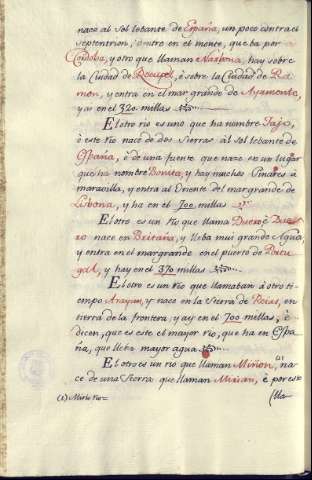 nace al Sol lebante de España, un poco contra el
septentrion, è entro en el monte, que ba por
Cordoba, y otro que llaman Nastona, hay sobre
la Ciudad de , ò sobre la Ciudad de
mon, y entra en el mar grande de Ayamonte,
y ay en el 320 millas
El otro rio es uno que ha nombre Tajo,
è este rio nace de dos Sierras al Sol lebante de
España, è de una fuente que nace en un lugar
que ha nombre , y hay muchos Pinares à
maravilla, y entra al Oriente del mar grande de
Lisbona, y ha en el 700 millas
El otro es un Rio que llama Duero, è Due
ro nace en Britaña, y lleba mui grande Agua,
y entra en el mar grande en el puerto de Portu
gal, y hay en el 370 millas
El otro es un rio que llamaban à otro ti-
empo Arayun, y nace en la Sierra de , en
tierra de la frontera, y ay en el 700 millas, è
dicen, que es este el mayor rio, que ha en Espa
ña, que lleba mayor agua
El otro es un rio que llaman Miñon, (1) na
ce de una Sierra que llaman Miñan, è por esto
(1) Miñe
(lla